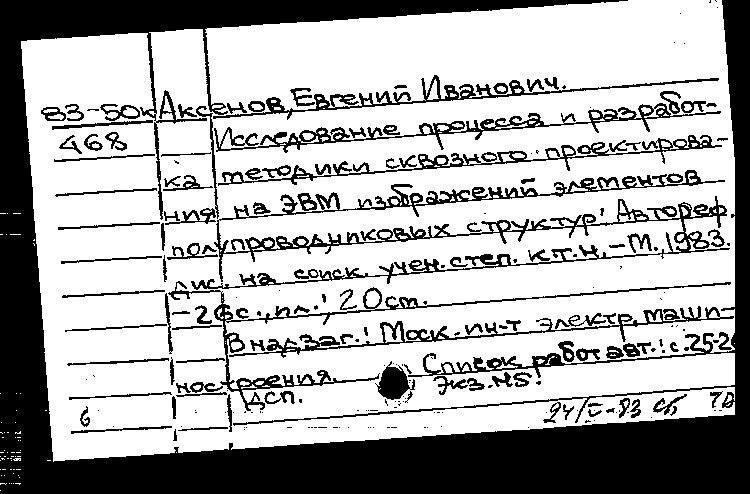 83-50к Аксенов, Евгений Иванович.
468 Исследование процесса и разработ-
ка методики сквозного проектирова-
ния на ЭВМ изображений элементов
полупроводниковых структур: Автореф.
дис. на соиск. учен. степ. к.т.н. - М., 1983.
- 26с., ил.; 20см.
В надзаг.: Моск. ин-т электр. маши-
ностроения. Список работ авт.: с.25-26
ДСП. Экз. №5!
6 24/V-83 сб